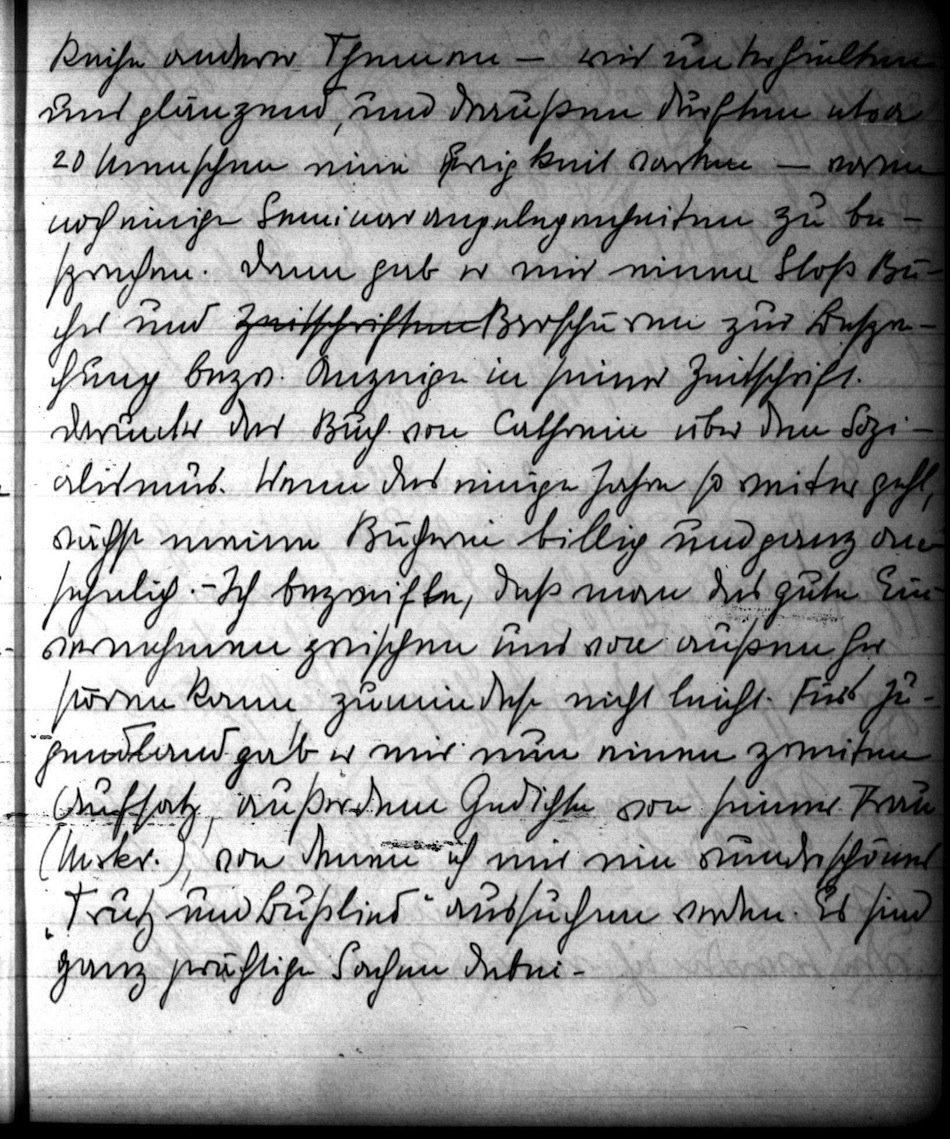 Reihe anderer Themen – wir unterhielten
uns glänzend, und draußen durften etwa
20 Menschen eine Ewigkeit warten – waren
noch einige Seminarangelegenheiten zu be-
sprechen. Dann gab er mir einen Stoß Bü-
cher und ~~Zeitschriften~~ Broschüren zur Bespre-
chung bezw. Anzeige in seiner Zeitschrift.
Darunter das Buch von Cathrein über den Sozi-
alismus. Wenn das einige Jahre so weiter geht,
wächst meine Bücherei billig und ganz an-
sehnlich. – Ich bezweifle, daß man das gute Ein-
vernehmen zwischen uns von außen her
stören kann, zumindest nicht leicht. Fürs Ju-
gendland gab er mir nun einen zweiten
Aufsatz, außerdem Gedichte von seiner Frau
(Mskr.), von denen ich mir ein wunderschönes
„Trutz und Bußlied“ aussuchen werde. Es sind
ganz prächtige Sachen dabei –